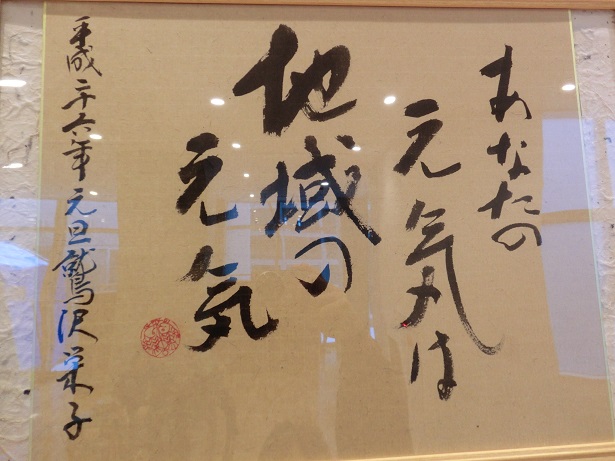 あなたの
元気は
地域の
元気
平成二十六年元旦鷲沢栄子